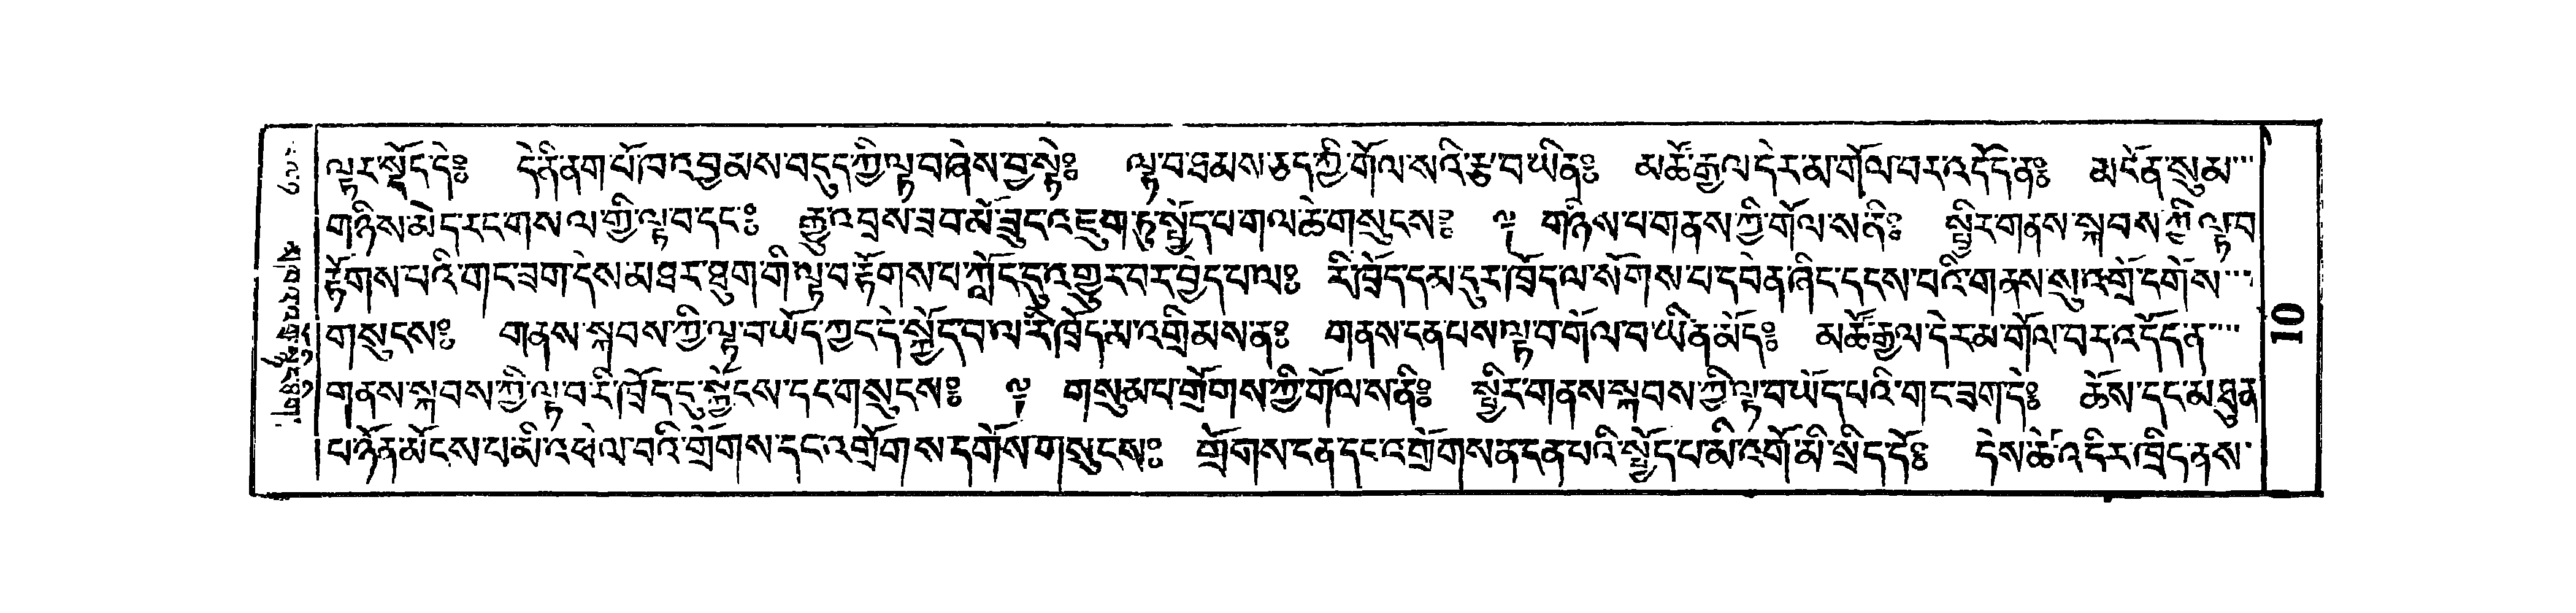 ལྟར་སྤྱོད་དེ༔ དེ་ནི་ནག་པོ་ཁ་འབྱམས་བདུད་ཀྱི་ལྟ་བ་ཞེས་བྱ་སྟེ༔ ལྟ་བ་ཐམས་ཅད་ཀྱི་གོལ་ས་འི་རྩ་བ་ཡིན༔ མཚོ་རྒྱལ་དེར་མ་གོལ་བར་འདོད་ན༔ མངོན་སུམ་
གཉིས་མེད་རང་གསལ་གྱི་ལྟ་བ་དང་༔ རྒྱུ་འབྲས་ཟབ་མོ་ཟུང་འཇུག་ཏུ་སྤྱོད་པ་གལ་ཆེ་གསུངས༔ ༈ གཉིས་པ་གནས་ཀྱི་གོལ་ས་ནི༔ སྤྱིར་གནས་སྐབས་ཀྱི་ལྟ་བ
རྟོགས་པའི་གང་ཟག་དེས་མཐར་ཐུག་གི་ལྟ་བ་རྟོགས་པ་ཀློང་དུ་འགྱུར་བར་བྱེད་པ་ལ༔ རི་ཁྲོད་དམ་དུར་ཁྲོད་ལ་སོགས་པ་དབེན་ཞིང་དྭངས་པའི་གནས་སུ་འགྲོ་དགོས་
གསུངས༔ གནས་སྐབས་ཀྱི་ལྟ་བ་ཡོད་ཀྱང་དེ་སྐྱོང་བ་ལ་རི་ཁྲོད་མ་འགྲིམས་ན༔ གནས་ངན་པས་ལྟ་བ་གོལ་བ་ཡིན་མོད༔ མཚོ་རྒྱལ་དེར་མ་གོལ་བར་འདོད་ན་
གནས་སྐབས་ཀྱི་ལྟ་བ་རི་ཁྲོད་དུ་སྐྱོངས་དང་གསུངས༔ ༈ གསུམ་པ་གྲོགས་ཀྱི་གོལ་ས་ནི༔ སྤྱིར་གནས་སྐབས་ཀྱི་ལྟ་བ་ཡོད་པའི་གང་ཟག་དེ༔ ཆོས་དང་མཐུན
པ་ཉོན་མོངས་པ་མི་འཕེལ་བའི་གྲོགས་དང་འགྲོགས་དགོས་གསུངས༔ གྲོགས་ངན་དང་འགྲོགས་ན་ངན་པའི་སྤྱོད་པ་མི་འགོ་མི་སྲིད་དོ༔ དེས་ཚེ་འདིར་ཁྲིད་ནས་